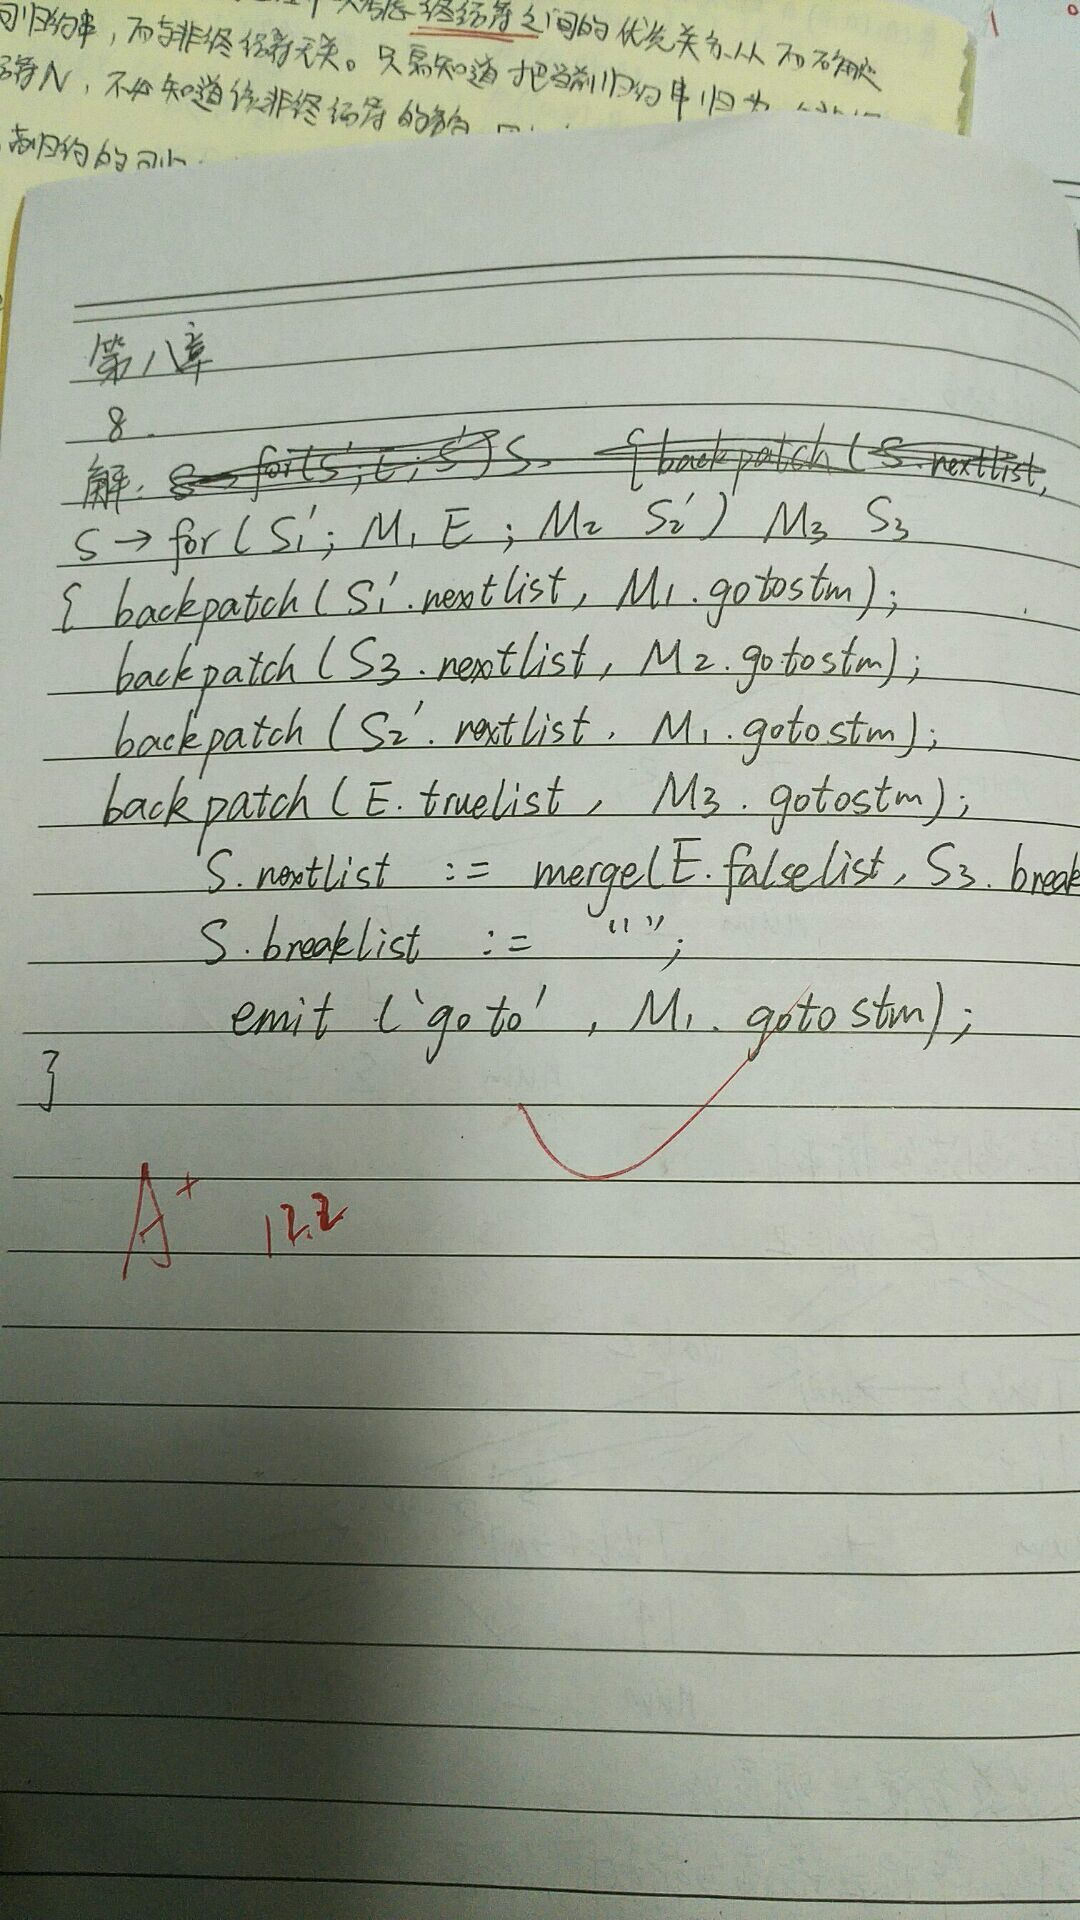 终结符之间的优先关系从而
可归约串，而与非终结符无关。只需知道把当前归约串归为
结符N，不必知道该非终结符的
归约的
第八章
8.
解: S→for(S';E;S')S {backpatch(S.nextlist,
S→for(S1'; M1 E; M2 S2') M3 S3
{ backpatch(S1'.nextlist, M1.gotostm);
backpatch(S3.nextlist, M2.gotostm);
backpatch(S2'.nextlist, M1.gotostm);
backpatch(E.truelist, M3.gotostm);
S.nextlist := merge(E.falselist, S3.break
S.breaklist := “”;
emit (‘goto’, M1.gotostm);
}
A+ 12.2